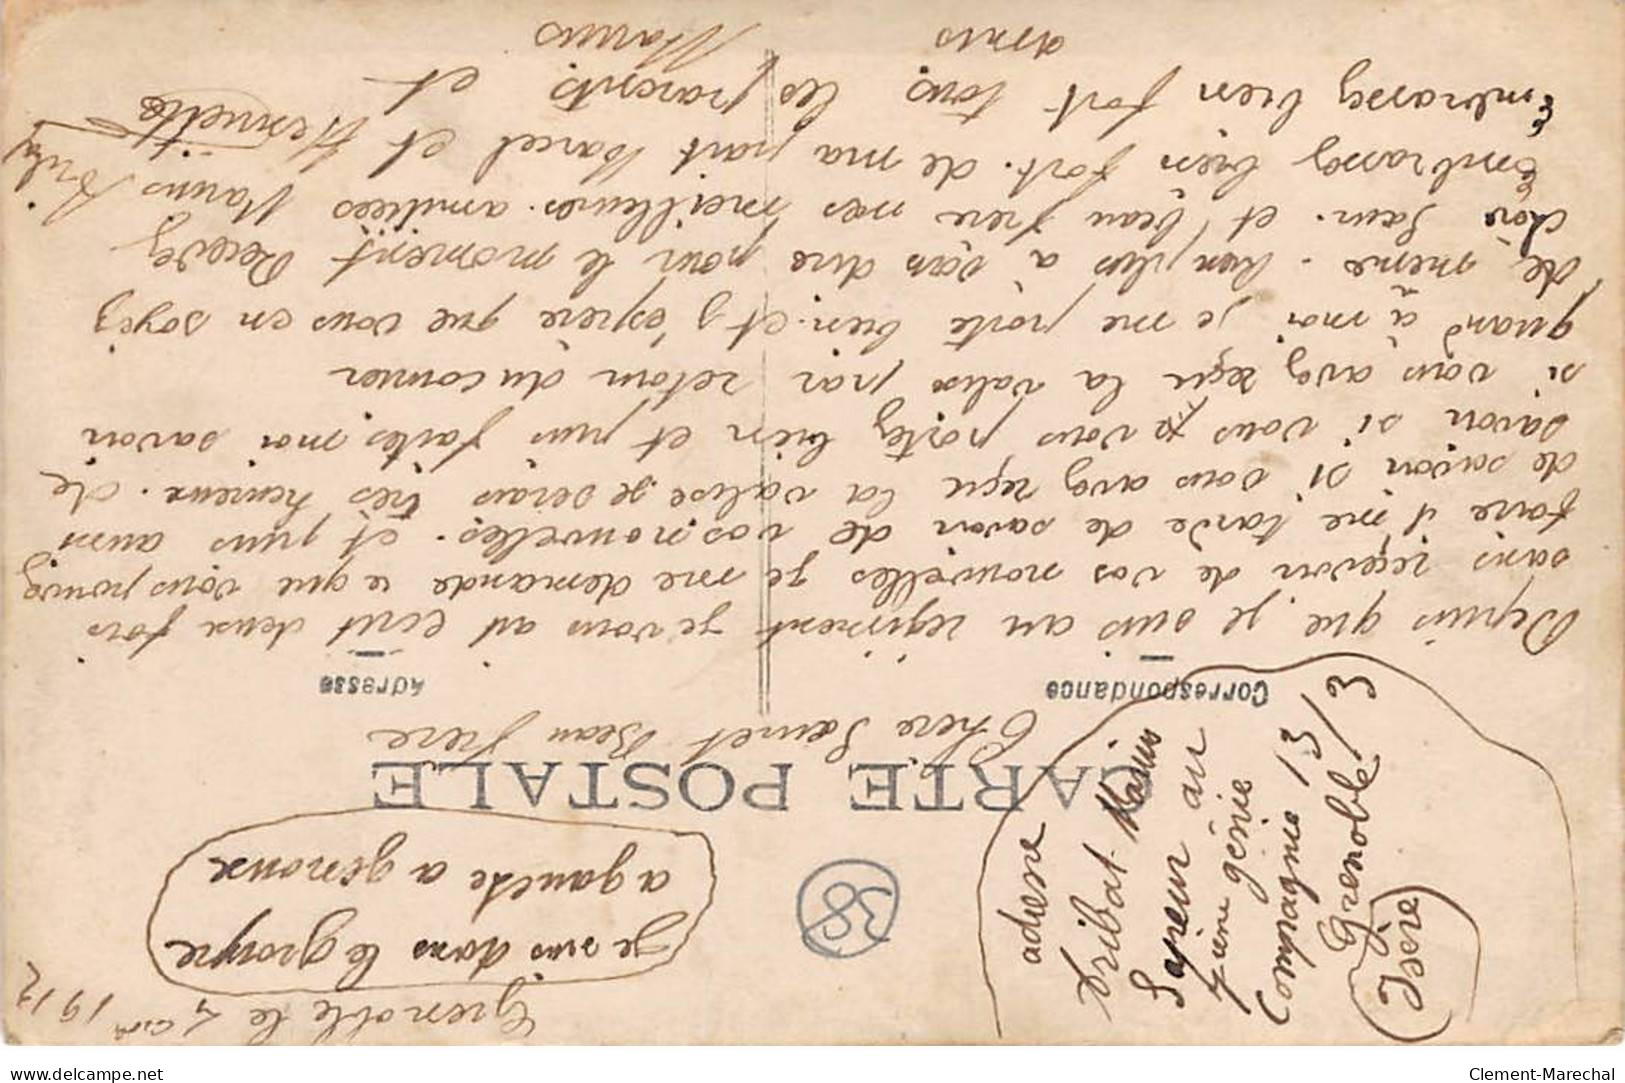 Grenoble le 4 1912
Je suis dans le groupe
a gauche a genoux
38
adresse
Marius
Sapeur au
7ième génie
Compagnie 13/3
Grenoble
(Isère)
CARTE POSTALE
Chere Sœur et Beau Frere
Correspondance
Adresse
Depuis que je suis au régiment je vous ait écrit deux fois
sans reçevoir de vos nouvelles je me demande ce que vous pouvez
faire il me tarde de savoir de vos nouvelles. et puis aussi
de savoir si vous avez reçu la valise je serais très heureux. de
savoir si vous vous portez bien et puis faites moi savoir
si vous avez reçu la valise par retour du courrier
quand à moi je me porte bien. et j'éspère que vous en soyez
de même. Rien plus à vous dire pour le moment Recevez
chère Sœur. et beau frere mes meilleures amitiées Marius
Embrassez bien fort. de ma part Marcel et Henriette
Embrassez bien fort tous les parents et
amis Marius
Clement-Marechal
delcampe.net